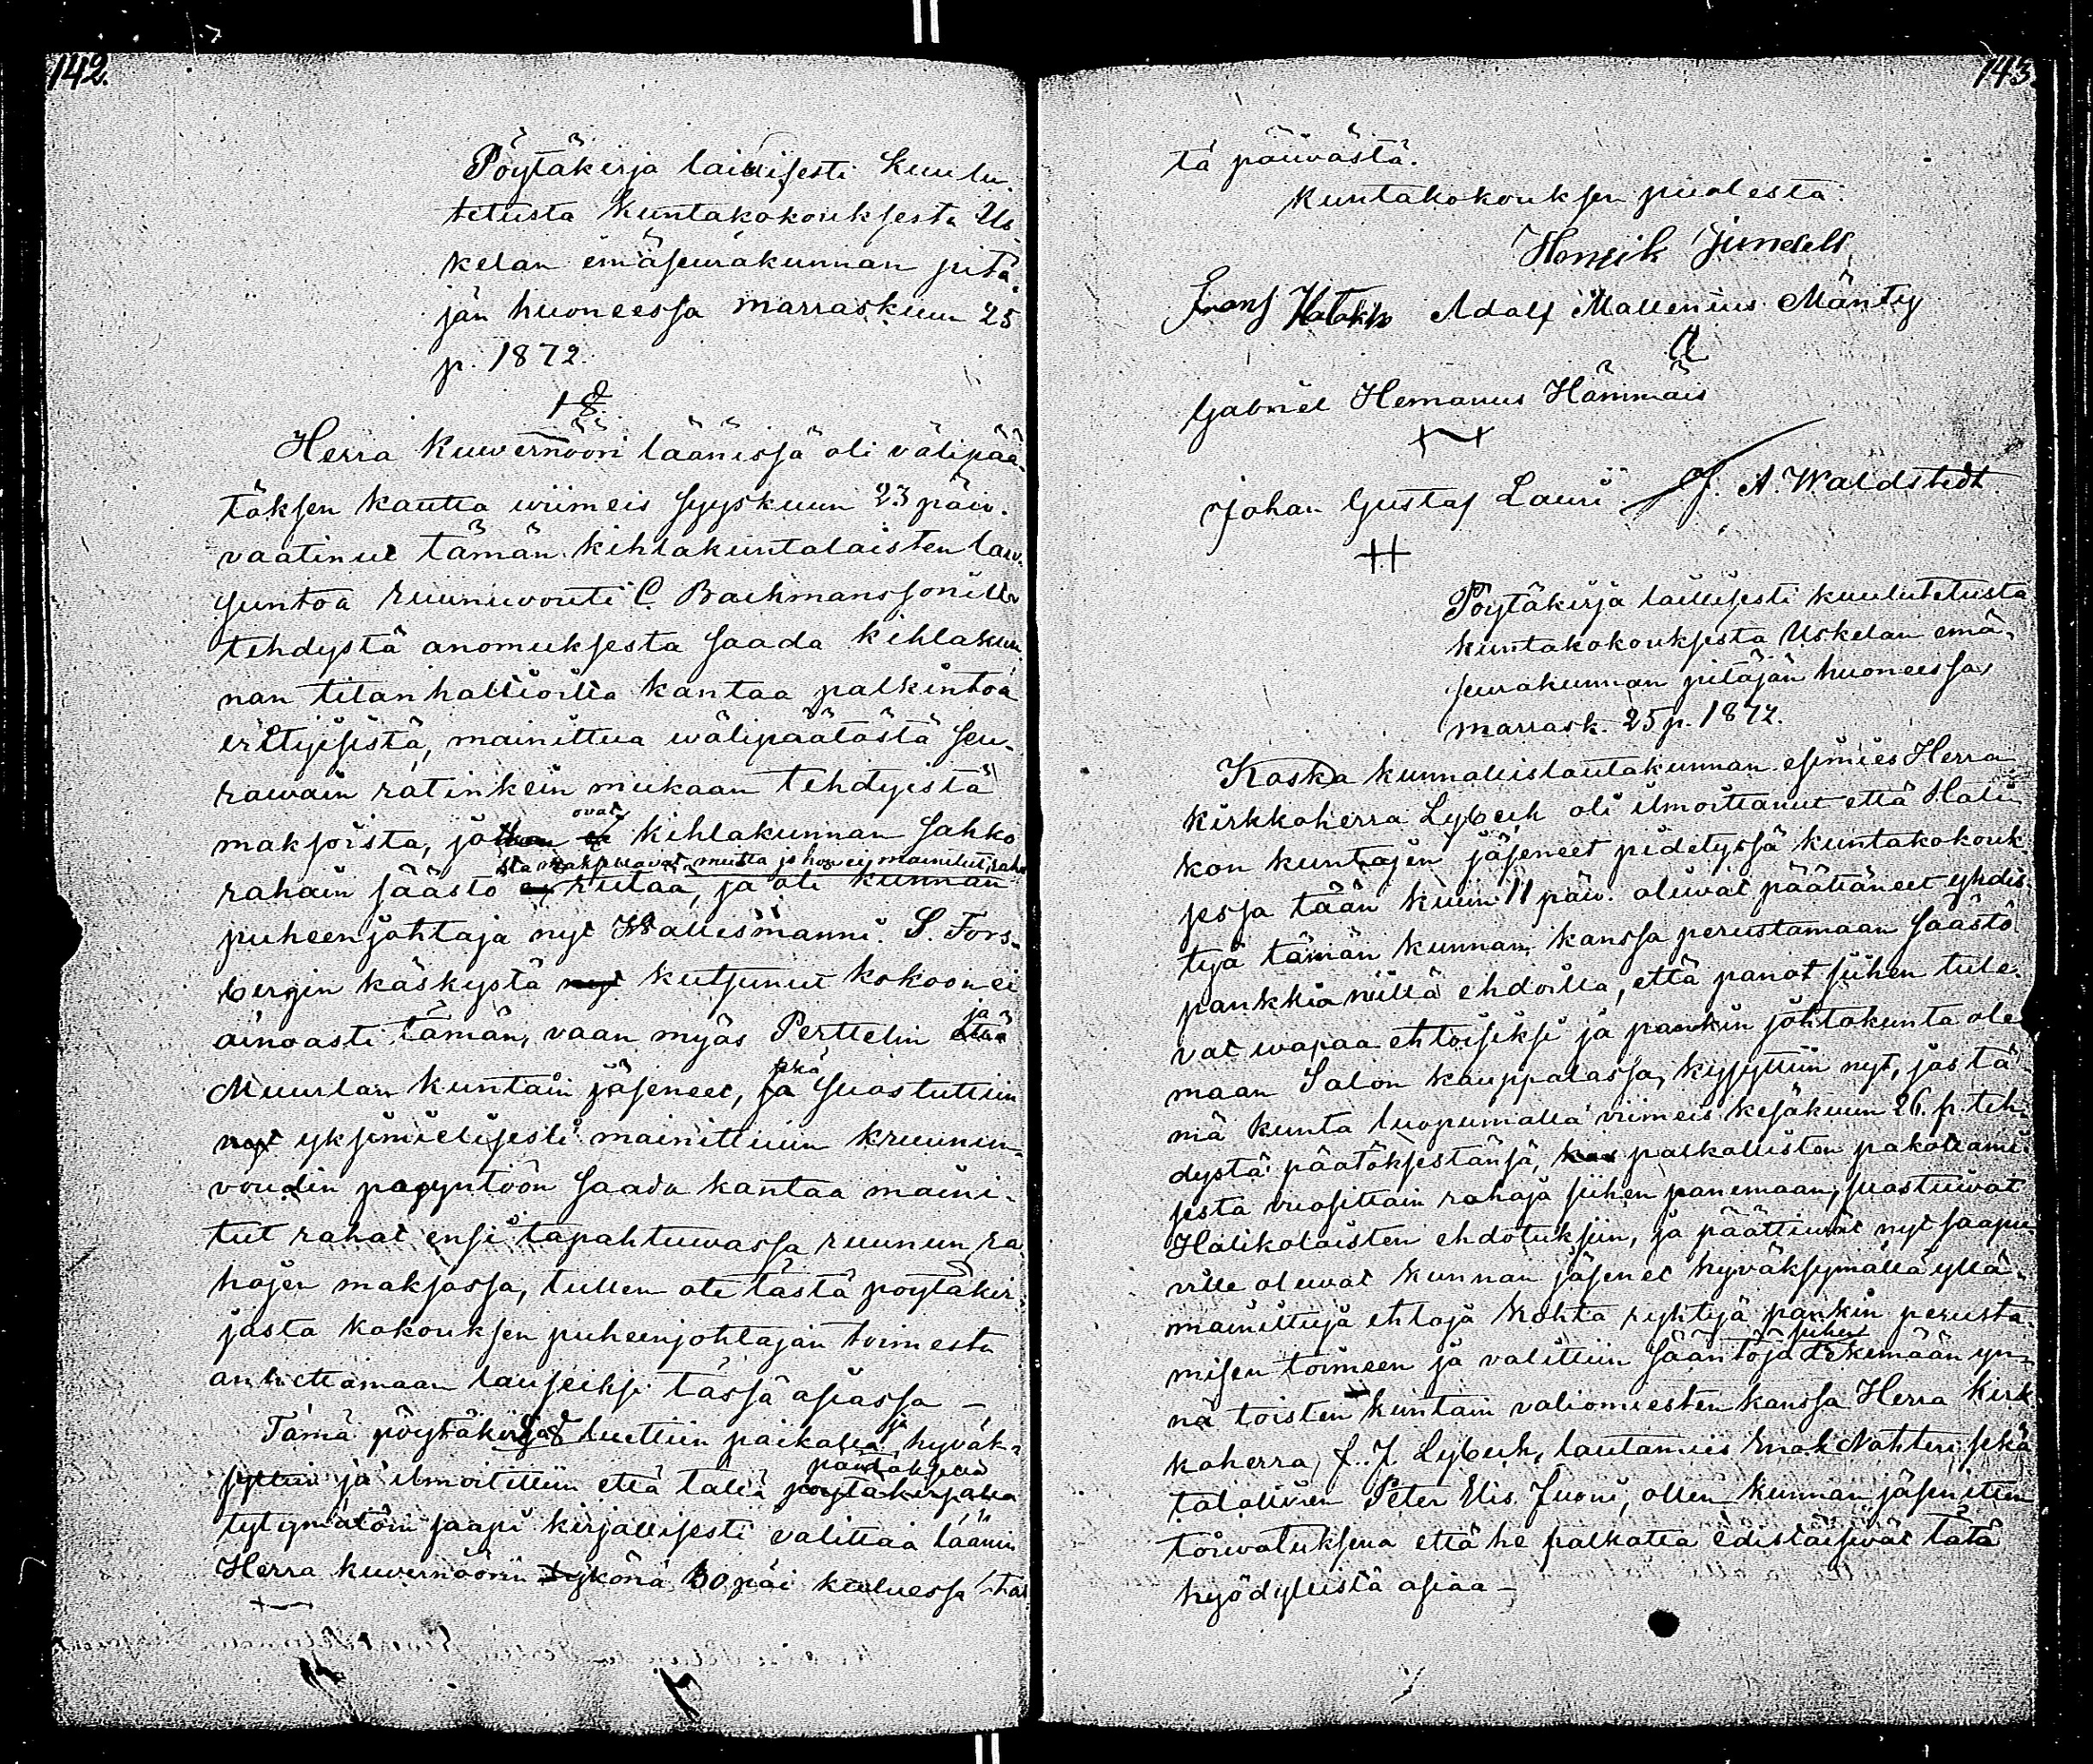 142.
Pöytäkirja laillisesti kuulu-
tetusta kuntakokouksesta Us-
kelan emäseurakunnan pitä-
jän huoneessa marraskuun 25
p. 1872.
1 §.
Herra Kuvernööri läänissä oli välipää-
töksen kautta wiimeis syyskuun 23 päiv.
vaatinut tämän kihlakuntalaisten lau-
suntoa ruunuvouti C. Bachmanssonilta
tehdystä anomuksesta saada kihlakun-
nan tilanhaltioilta kantaa palkintoa
erityisistä, mainittua wälipäätöstä seu-
rawain rätinkein mukaan tehdyistä
maksoista, ovat kihlakunnan sakko
sta maksettavat mutta johon ei mainitut rah-
rahain säästö ei riitää, ja oli kunnan
puheenjohtaja nyt Wallesmanni S. Fors-
bergin käskystä nyt kutsunut kokoon ei
ja
ainoasti tämän, vaan myös Perttelin
sekä
Muurlan kuntain jäseneet, ja suostuttiin
nyt yksimielisesti mainittuun kruunun-
voudin pagyntöön saada kantaa maini-
tut rahat ensi tapahtuwassa ruunun ra-
hojen maksossa, tullen ote tästä pöytäkir-
jasta kokouksen puheenjohtajan toimesta
annettamaan lauseiksi tässä asiassa —
ja
Tämä pöytäkirja luettiin paikalla hyväk-
päätöksellä
syttiin ja ilmoitettiin että tähä pöytäkirjalla
tytymätöin saapi kirjallisesti valittaa läänin
Herra kuvernöörin tykönä 30 päi kuluessa täs-
143.
tä päiwästä.
Kuntakokouksen puolesta:
Henrik Jundell
Frans Hatakko Adolf Mallenius Mänty
Gabriel Hemanus Hämmäis
Johan Gustaf Lauri J. A. Waldstedt.
Pöytäkirja laillisesti kuulutetusta
kuntakokouksesta Uskelan emä-
seurakunnan pitäjän huoneessa,
marrask. 25 p. 1872.
Koska kunnallislautakunnan esimies Herra
kirkkoherra Lybeck oli ilmoittanut että Hali-
kon kuntajen jäseneet pidetyssä kuntakokouk-
sessa tään kuun 11 päiv. oliwat päättäneet yhdis-
tyä tämän kunnan kanssa perustamaan säästö
pankkia niillä ehdoilla, että panot siihen tule-
vat wapaa ehtoisiksi ja pankin johtokunta ole-
maan Salon kauppalassa, kysyttiin nyt, jos tä-
mä kunta luopumalla viimeis kesäkuun 26. p. teh-
dystä päätöksestänsä, palkollisten pakottami-
sesta vuosittain rahoja siihen panemaan, suostuiwat
Halikolaisten ehdotuksiin, ja päättiwät nyt saapu-
ville olewat kunnan jäsenet hyväksymällä yllä-
mainittuja ehtoja kohta ryhtyä pankin perusta-
siihen
misen toimeen ja valittiin sääntöjä tekemään yn-
nä toisten kuntain valiomiesten kanssa Herra kirk-
koherra F. J. Lybeck, lautamies Enok Nohteri sekä
talollinen Peter Elis Juoni, ollen kunnan jäseniten
toiwotuksena että he palkatta edistäisiwät tätä
hyödyllistä asiaa —